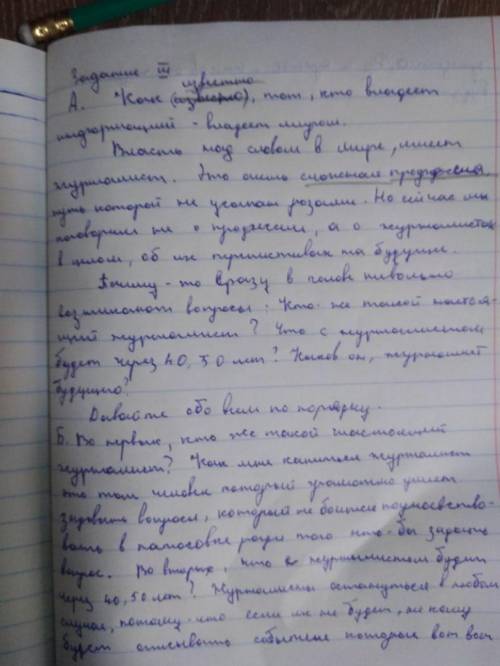 Задание III
известно
А. "Как (созвестно), тот, кто владеет
информацией - владеет миром.
Власть над словом в мире, имеет
журналист. Это очень сложная профессия,
путь которой не усыпан розами. Но сейчас мы
поговорим не о профессии, а о журналистах
в целом, об их перспективах на будущее.
Почему-то сразу в голове невольно
возникают вопросы: Кто же такой настоя-
щий журналист? Что с журналистом
будет через 40, 50 лет? Каков он, журналист
будущего?
Давайте обо всем по порядку.
Б. Во первых, кто же такой настоящий
журналист? Как мне кажется журналист
это тот человек который грамотно умеет
задавать вопросы, который не боится поучаство-
вать в потасовке ради того что-бы задать
вопрос. Во вторых, что с журналистом будет
через 40, 50 лет? Журналисты останутся в любом
случае, потому-что если их не будет, не кому
будет описывать события которые вот вот